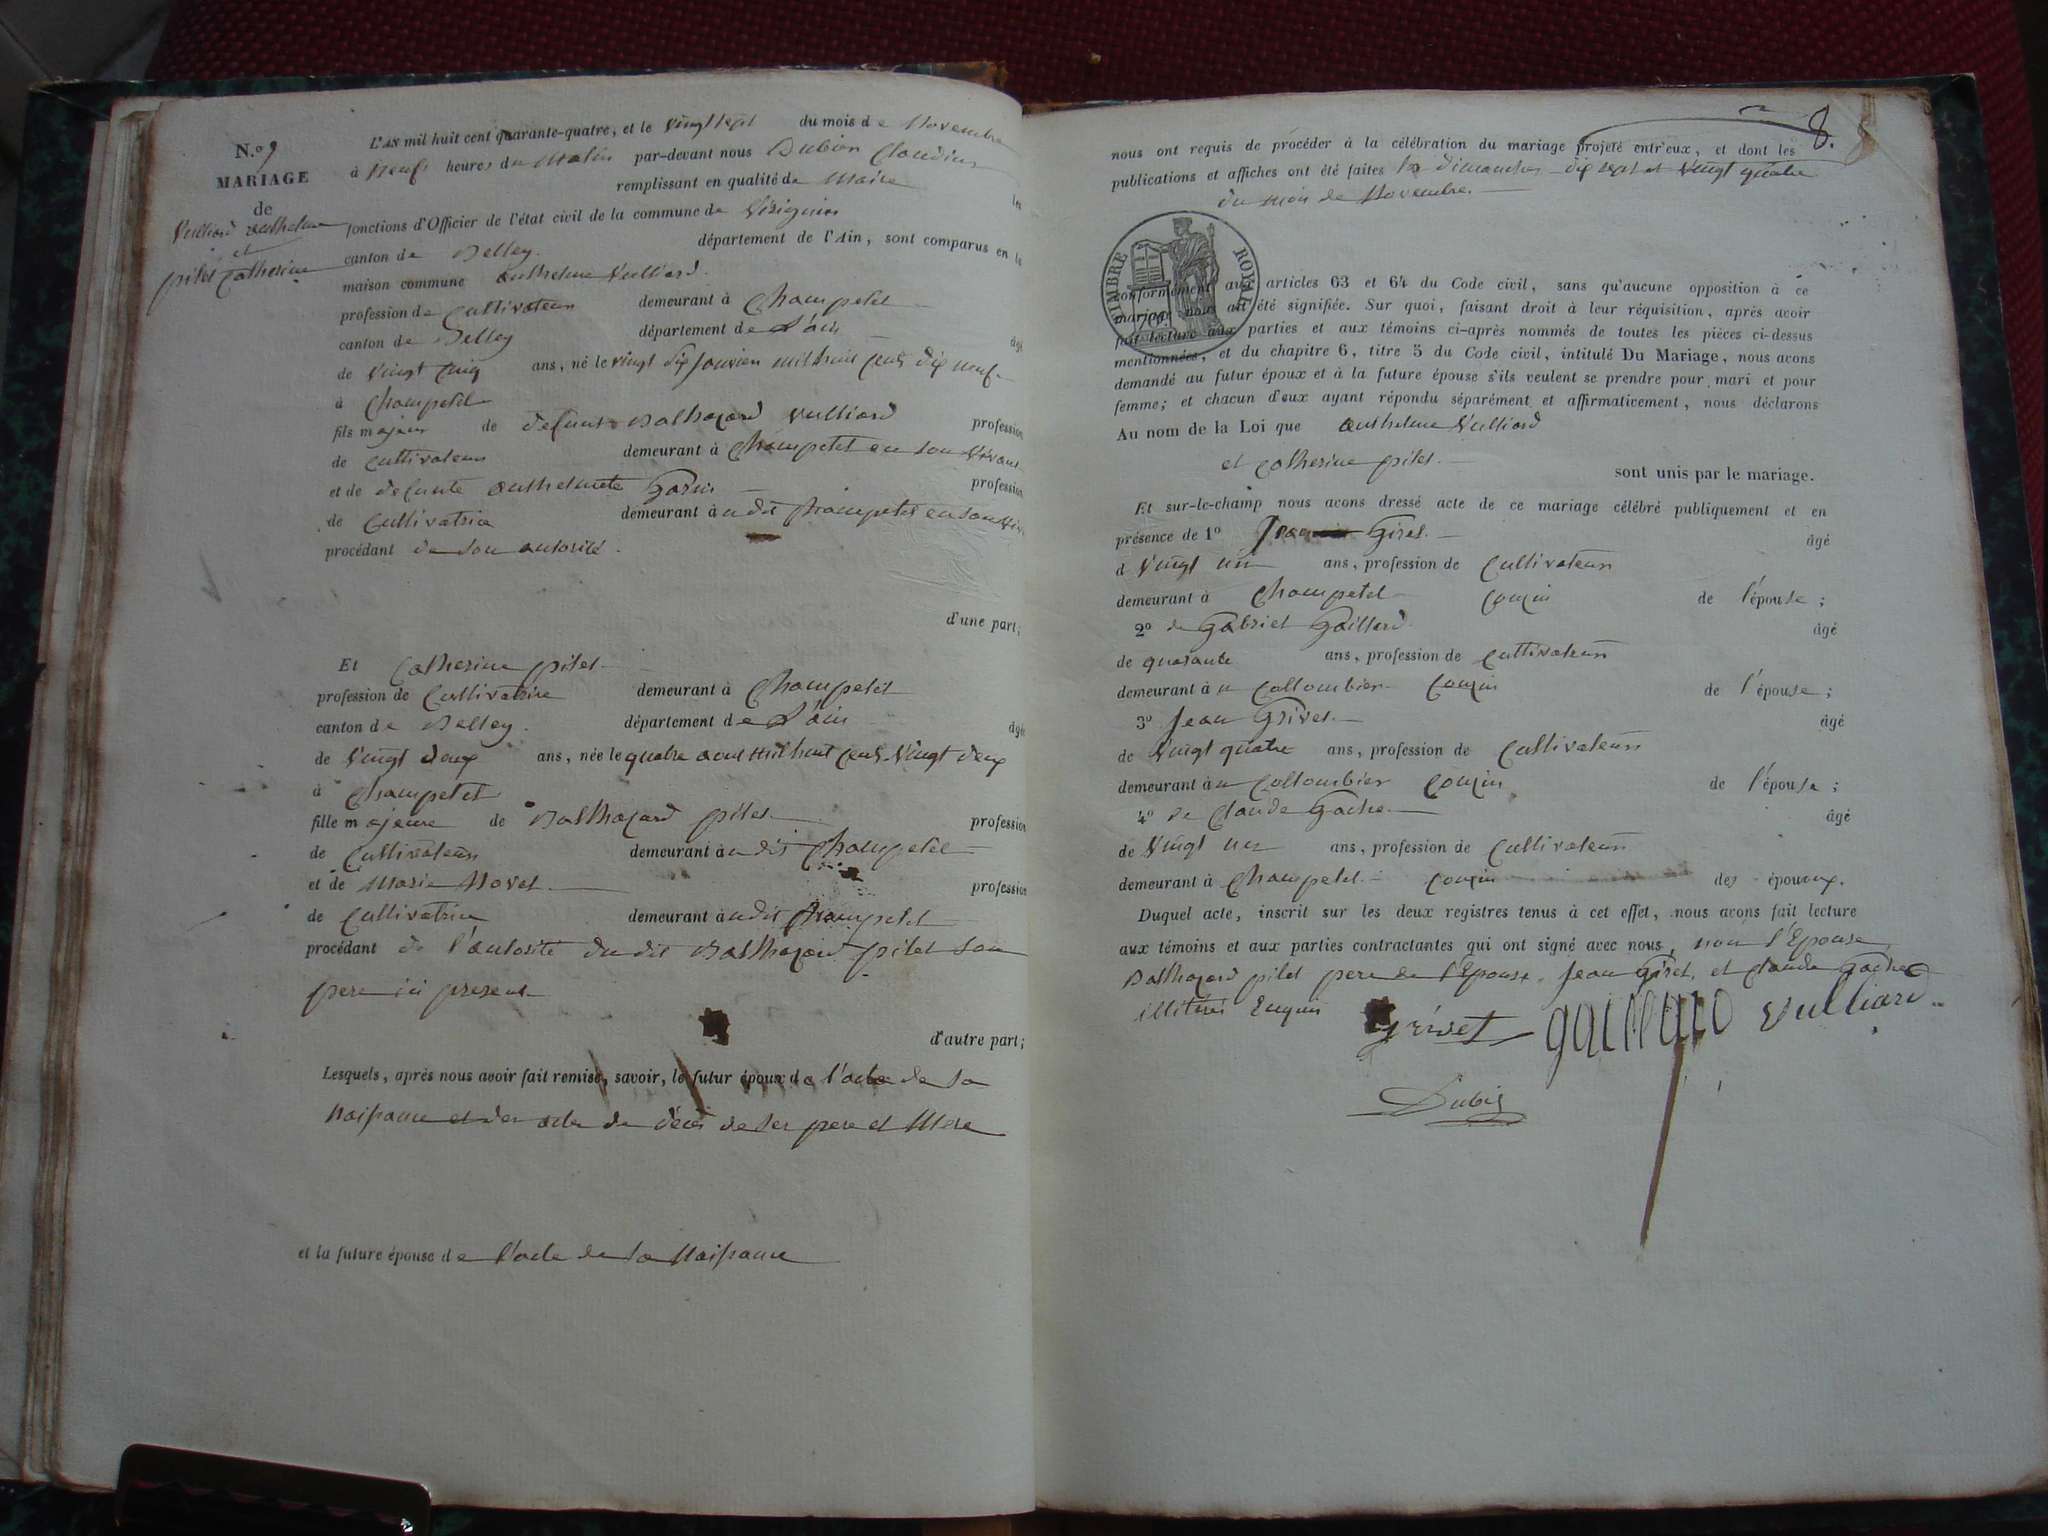 N.o 9
MARIAGE
de
Vulliard anthelme
et
pilet Catherine
L'AN mil huit cent quarante-quatre, et le vingt sept du mois de Novembre
à Neuf heures du Matin par-devant nous Dubois Claudius
remplissant en qualité de Maire les
fonctions d'Officier de l'état civil de la commune de Virignin
canton de Belley. département de l'Ain, sont comparus en la
maison commune anthelme Vulliard.
profession de Cultivateur demeurant à Champetel
canton de Belley département de L'ain âgé
de Vingt Cinq ans, né le vingt dix Janvier mil huit Cent dix neuf
à Champetel
fils majeur de defunt Balthazard Vulliard profession
de Cultivateur demeurant à Champetel en son Vivant
et de defunte anthelmete Garin profession
de Cultivatrice demeurant à u dit Champetel en son Viv
procédant de son autorité.
d'une part;
Et Catherine pilet
profession de Cultivatrice demeurant à Champetel
canton de Belley. département de L'ain âgée
de Vingt deux ans, née le quatre aout mil huit Cent Vingt deux
à Champetel
fille majeure de Balthazard pilet profession
de Cultivateur demeurant à u dit Champetel
et de Marie Novet profession
de Cultivatrice demeurant à u dit Champetel
procédant de l'autorité du dit Balthazard pilet son
pere ici present
d'autre part;
Lesquels, après nous avoir fait remise, savoir, le futur époux de l'acte de sa
Naissance et des actes de décès de ses pere et Mere
et la future épouse de l'acte de sa Naissance
8.
nous ont requis de procéder à la célébration du mariage projeté entr'eux, et dont les
publications et affiches ont été faites les dimanches dix sept et vingt quatre
du mois de Novembre.
TIMBRE ROYAL
conformément aux articles 63 et 64 du Code civil, sans qu'aucune opposition à ce
mariage nous ait été signifiée. Sur quoi, faisant droit à leur réquisition, après avoir
fait lecture aux parties et aux témoins ci-après nommés de toutes les pièces ci-dessus
mentionnées, et du chapitre 6, titre 5 du Code civil, intitulé Du Mariage, nous avons
demandé au futur époux et à la future épouse s'ils veulent se prendre pour mari et pour
femme; et chacun d'eux ayant répondu séparément et affirmativement, nous déclarons
Au nom de la Loi que anthelme Vulliard
et Catherine pilet sont unis par le mariage.
Et sur-le-champ nous avons dressé acte de ce mariage célébré publiquement et en
présence de 1o Giret. âgé
d Vingt un ans, profession de Cultivateur
demeurant à Champetel Couzin de l'épouse;
2o de Gabriel Gaillard âgé
de quarante ans, profession de Cultivateur
demeurant à u Collombier Couzin de l'épouse;
3o Jean Grivet âgé
de Vingt quatre ans, profession de Cultivateur
demeurant à u Collombier Couzin de l'épouse;
4o de Claude Gache âgé
de Vingt un ans, profession de Cultivateur
demeurant à Champetel Couzin des épououx.
Duquel acte, inscrit sur les deux registres tenus à cet effet, nous avons fait lecture
aux témoins et aux parties contractantes qui ont signé avec nous, non l'Epouse,
Balthazard pilet pere de l'Epouse, Jean Giret, et Claude Gache
illiterés Enquis
Grivet gaillard vulliard
Dubois